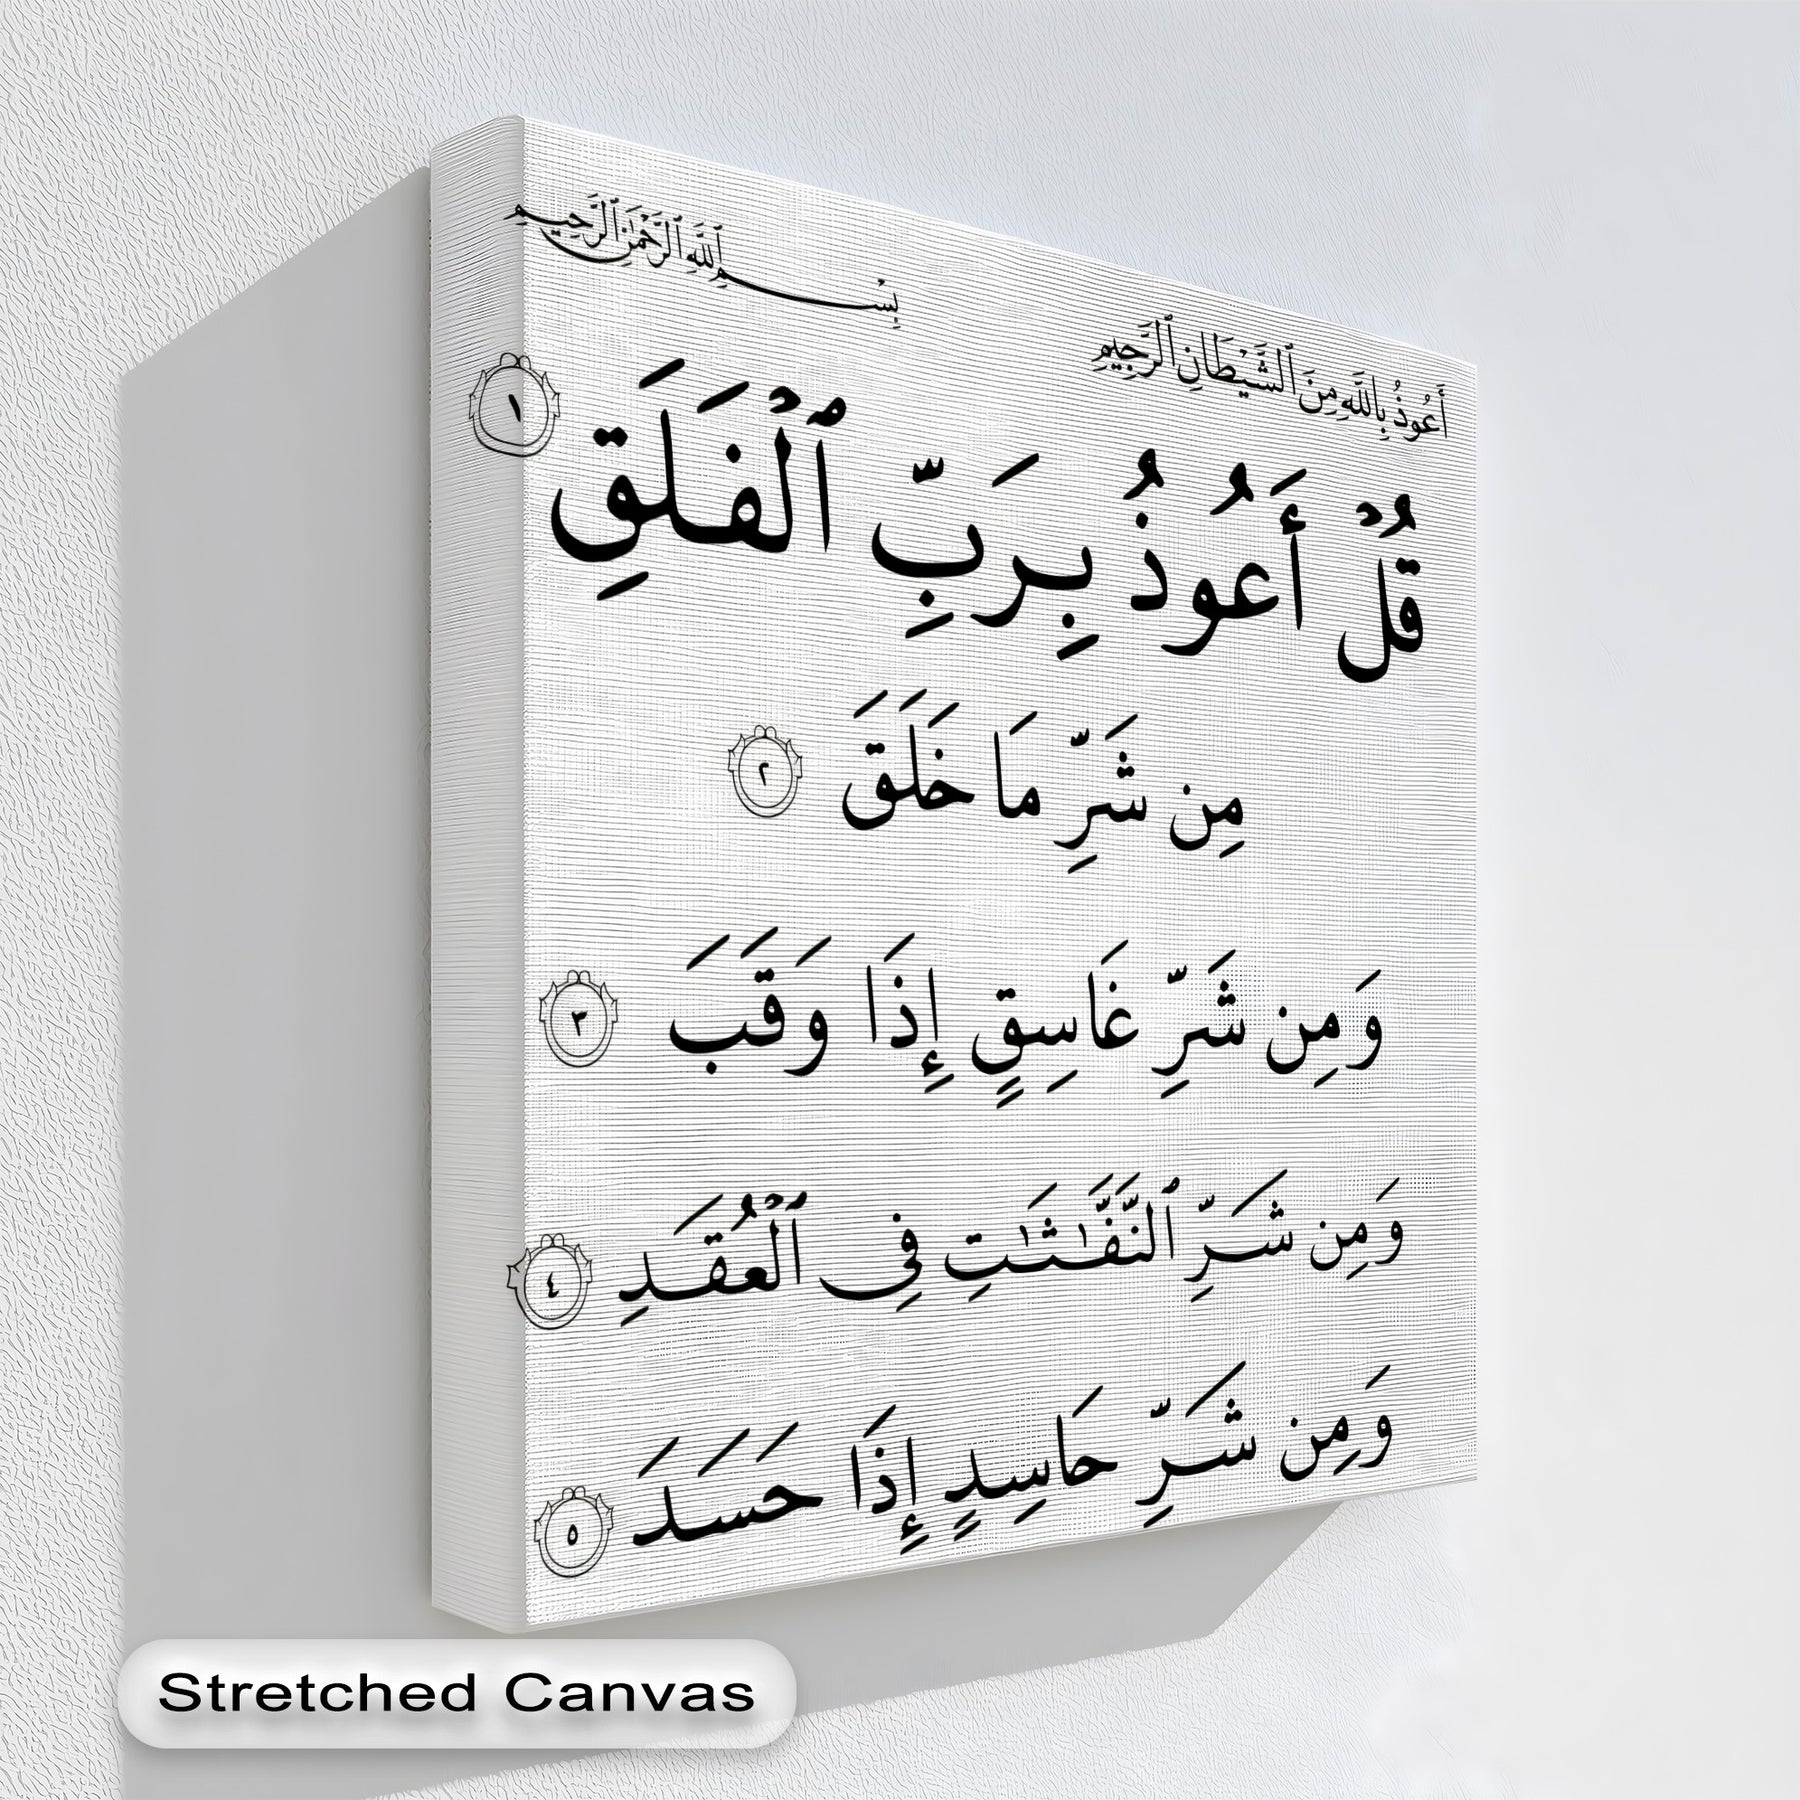 أَعُوذُ بِاللَّهِ مِنَ ٱلشَّيْطَانِ ٱلرَّجِيمِ
بِسْمِ ٱللَّهِ ٱلرَّحْمَٰنِ ٱلرَّحِيمِ
قُلْ أَعُوذُ بِرَبِّ ٱلْفَلَقِ ١
مِن شَرِّ مَا خَلَقَ ٢
وَمِن شَرِّ غَاسِقٍ إِذَا وَقَبَ ٣
وَمِن شَرِّ ٱلنَّفَّٰثَٰتِ فِى ٱلْعُقَدِ ٤
وَمِن شَرِّ حَاسِدٍ إِذَا حَسَدَ ٥
Stretched Canvas